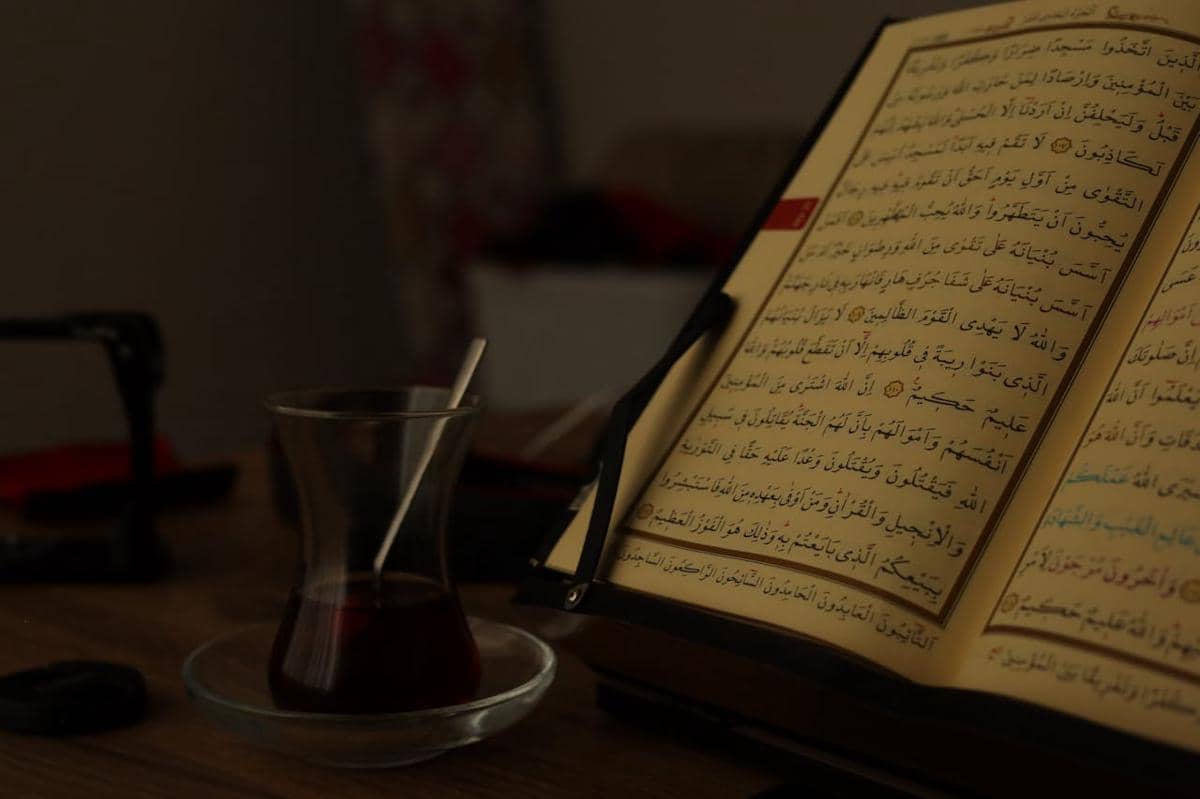 عَسَى
اَمْوَالِهِمْ
اِنَّ صَلٰوتَكَ
يَعْلَمُٓوا اَنَّ اللّٰهَ
وَاَنَّ اللّٰهَ هُوَ
اللّٰهُ عَمَلَكُمْ
عَالِمِ الْغَيْبِ وَالشَّهَادَةِ
وَاٰخَرُونَ مُرْجَوْنَ لِاَمْرِ
وَاللّٰهُ عَلِيمٌ حَكِيمٌ
كُفْرًا وَتَفْرِيقًا بَيْنَ الْمُؤْمِنِينَ
اَلَّذِينَ اتَّخَذُوا مَسْجِدًا ضِرَارًا وَكُفْرًا وَتَفْرِيقًا
بَيْنَ الْمُؤْمِنِينَ وَاِرْصَادًا لِمَنْ حَارَبَ اللّٰهَ وَرَسُولَهُ مِنْ
قَبْلُ وَلَيَحْلِفُنَّ اِنْ اَرَدْنَٓا اِلَّا الْحُسْنٰى وَاللّٰهُ يَشْهَدُ اِنَّهُمْ
لَكَاذِبُونَ ۝ لَا تَقُمْ فِيهِ اَبَدًا لَمَسْجِدٌ اُسِّسَ عَلَى
التَّقْوٰى مِنْ اَوَّلِ يَوْمٍ اَحَقُّ اَنْ تَقُومَ فِيهِ فِيهِ رِجَالٌ
يُحِبُّونَ اَنْ يَتَطَهَّرُوا وَاللّٰهُ يُحِبُّ الْمُطَّهِّرِينَ ۝ اَفَمَنْ
اَسَّسَ بُنْيَانَهُ عَلٰى تَقْوٰى مِنَ اللّٰهِ وَرِضْوَانٍ خَيْرٌ اَمْ مَنْ
اَسَّسَ بُنْيَانَهُ عَلٰى شَفَا جُرُفٍ هَارٍ فَانْهَارَ بِهِ فِي نَارِ جَهَنَّمَ
وَاللّٰهُ لَا يَهْدِي الْقَوْمَ الظَّالِمِينَ ۝ لَا يَزَالُ بُنْيَانُهُمُ
الَّذِي بَنَوْا رِيبَةً فِي قُلُوبِهِمْ اِلَّٓا اَنْ تَقَطَّعَ قُلُوبُهُمْ وَاللّٰهُ
عَلِيمٌ حَكِيمٌ ۝ اِنَّ اللّٰهَ اشْتَرٰى مِنَ الْمُؤْمِنِينَ
اَنْفُسَهُمْ وَاَمْوَالَهُمْ بِاَنَّ لَهُمُ الْجَنَّةَ يُقَاتِلُونَ فِي سَبِيلِ
اللّٰهِ فَيَقْتُلُونَ وَيُقْتَلُونَ وَعْدًا عَلَيْهِ حَقًّا فِي التَّوْرٰيةِ
وَالْاِنْجِيلِ وَالْقُرْاٰنِ وَمَنْ اَوْفٰى بِعَهْدِهِ مِنَ اللّٰهِ فَاسْتَبْشِرُوا
بِبَيْعِكُمُ الَّذِي بَايَعْتُمْ بِهِ وَذٰلِكَ هُوَ الْفَوْزُ الْعَظِيمُ ۝
اَلتَّٓائِبُونَ الْعَابِدُونَ الْحَامِدُونَ السَّٓائِحُونَ الرَّاكِعُونَ السَّاجِدُونَ